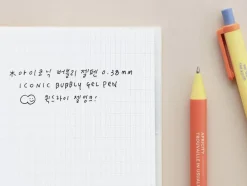 *아이코닉 버블리 젤펜 0.38mm
ICONIC BUBBLY GEL PEN
퀵드라이 젤잉크!